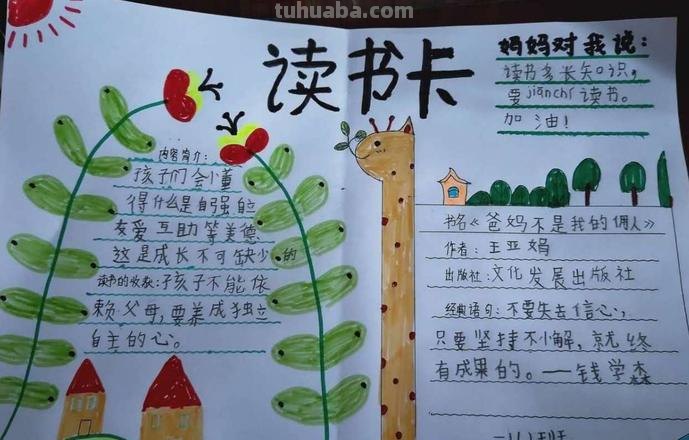 tuhuaba.com
读书卡
妈妈对我说：
读书多长知识，
要jianchi读书。
加油！
内容简介：
孩子们会小董
得什么是自强自立
友爱互助等美德
这是成长不可缺少的
读书的收获：孩子不能依
赖父母，要养成独立
自主的心。
书名《爸妈不是我的佣人》
作者：王亚妈
出版社：文化发展出版社
经典语句：不要失去信心，
只要坚持不小解，就终
有成果的。——钱学森